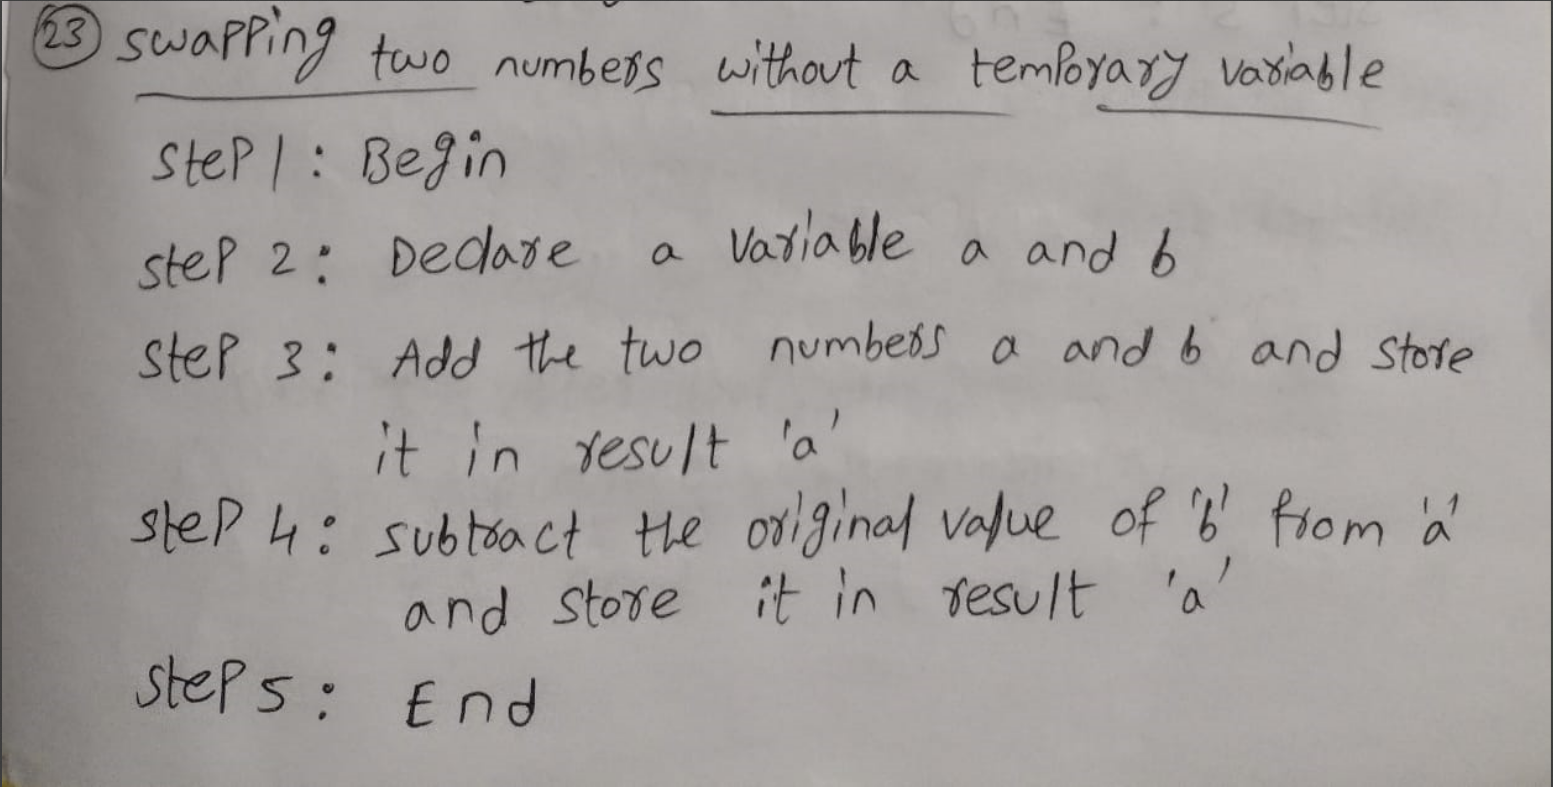 23 swapping two numbers without a temporary variable
step 1 : Begin
step 2 : Declare a variable a and b
step 3 : Add the two numbers a and b and store
it in result 'a'
step 4 : subtract the original value of 'b' from 'a'
and store it in result 'a'
step 5 : End